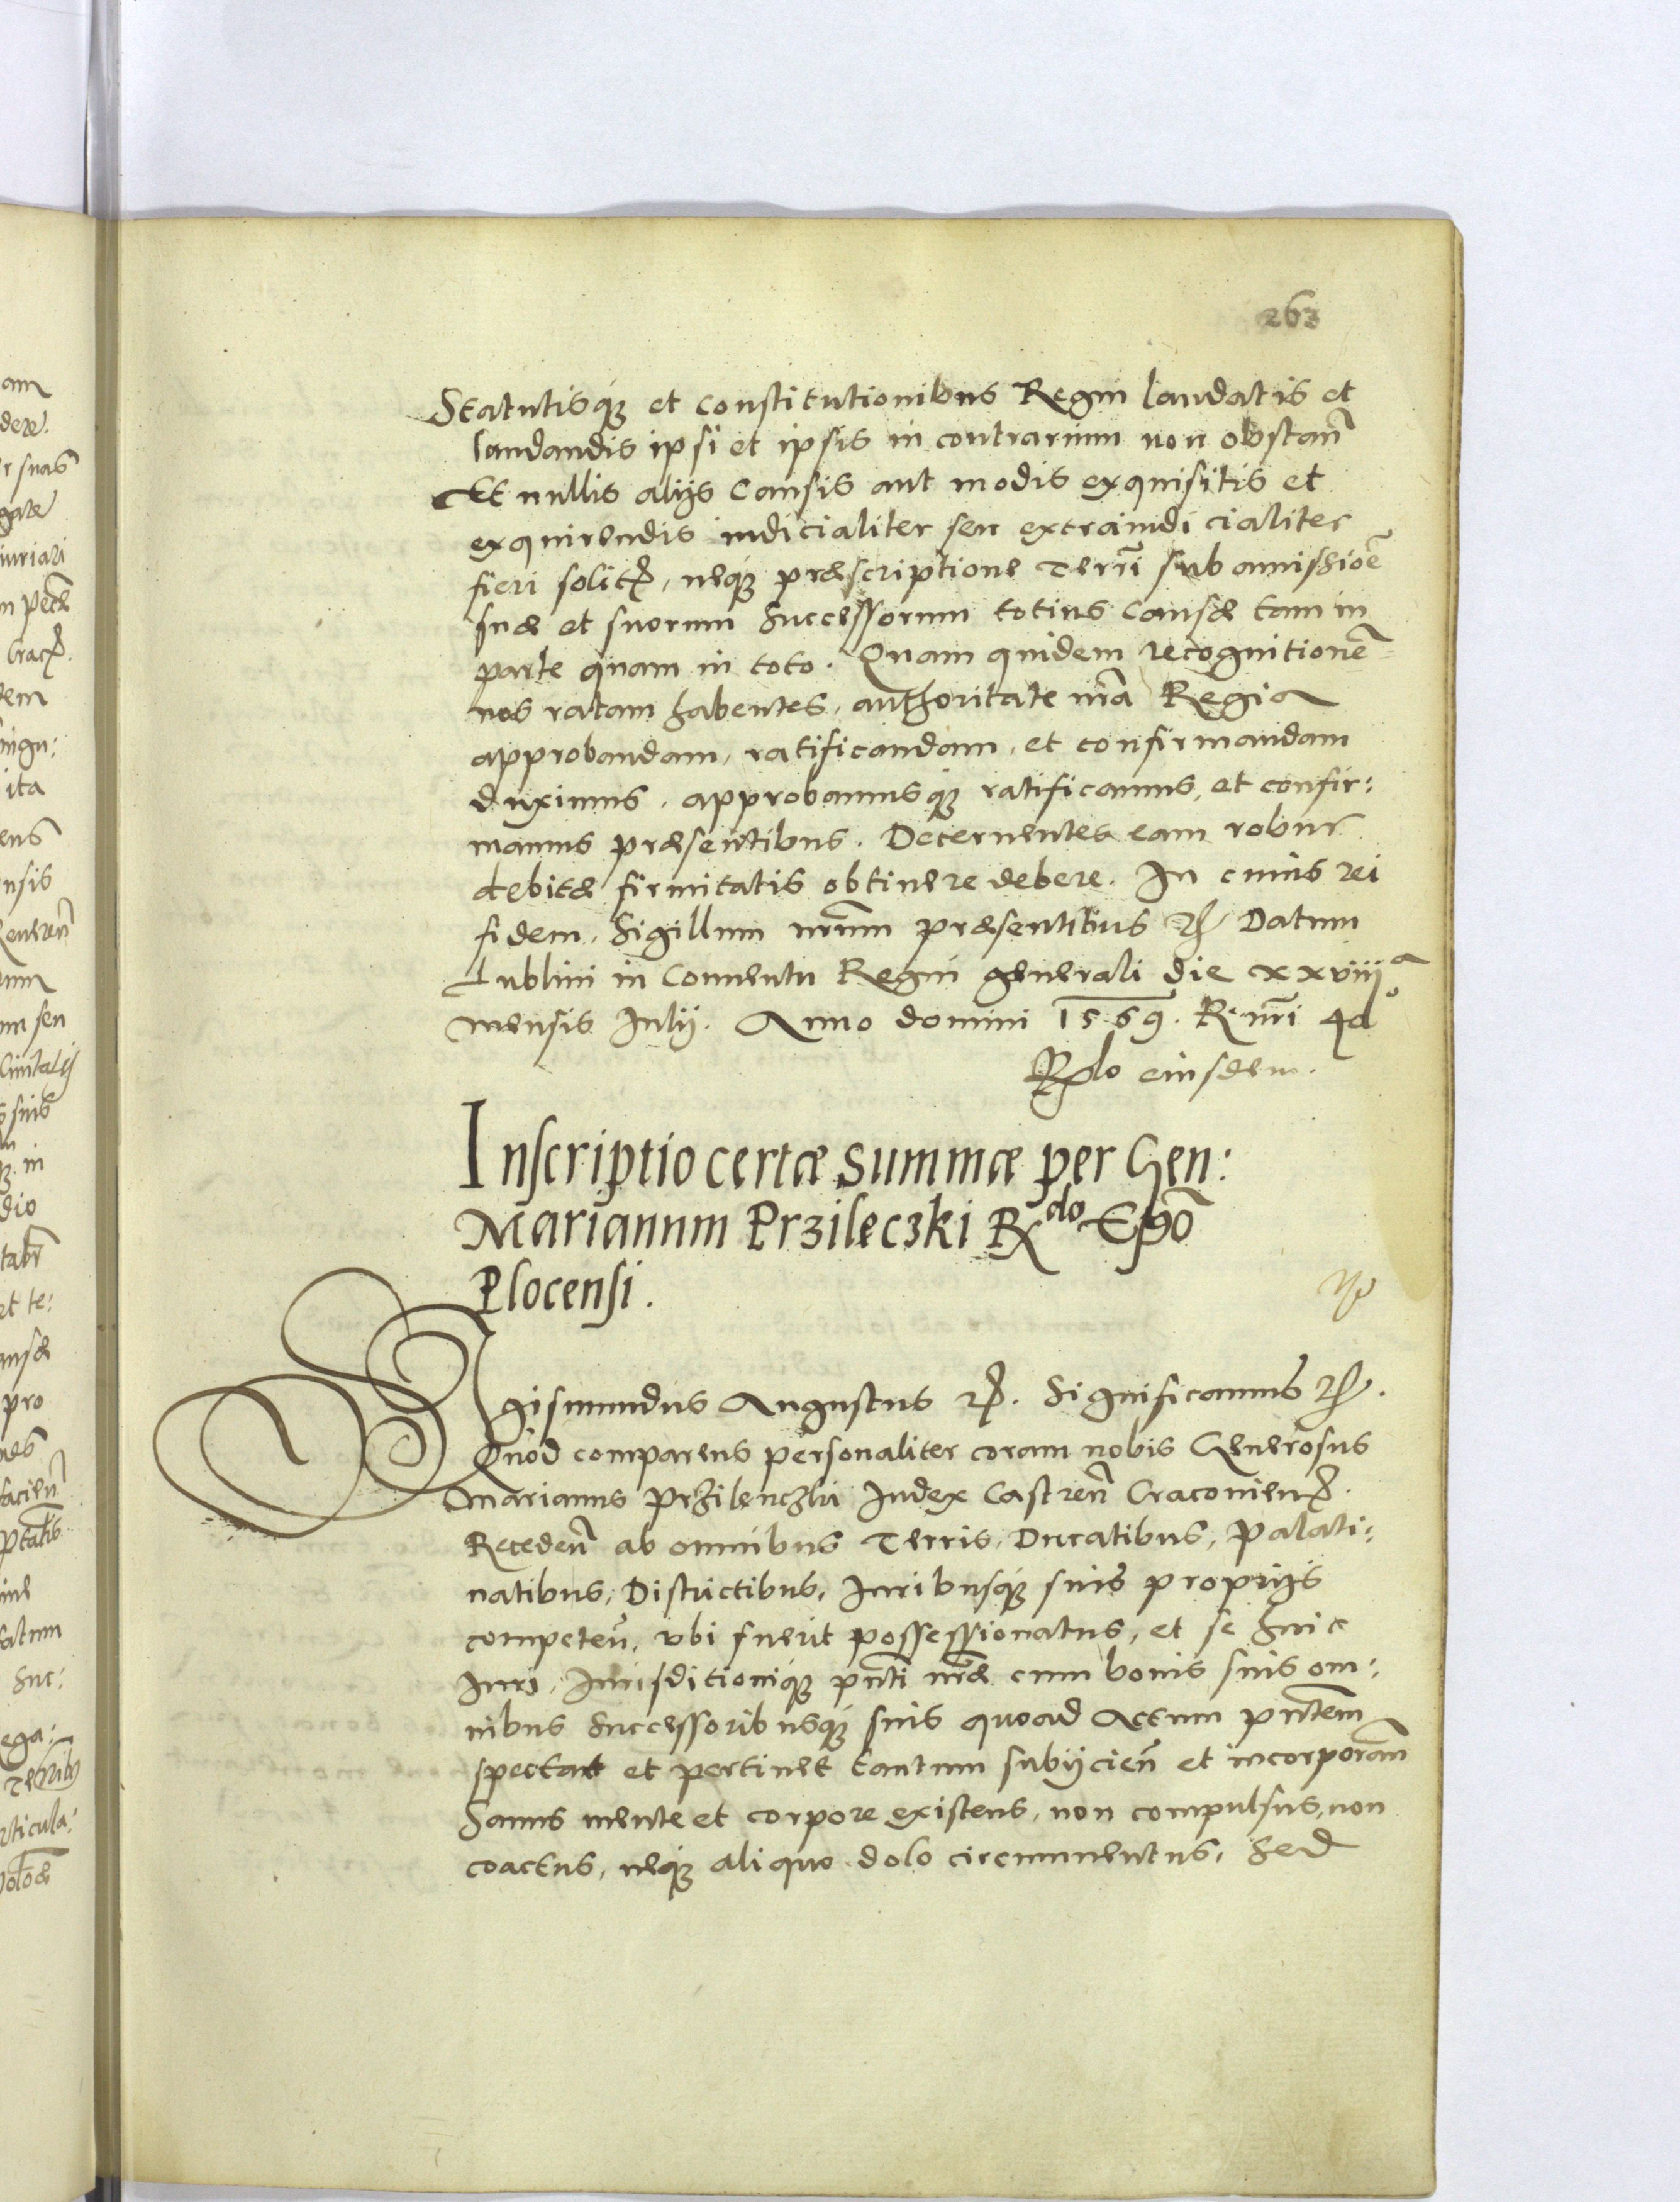 263
Statutisq; et constitutionibus Regni laudatis et
laudandis ipsi et ipsis in contrarium non obstan̄
Et nullis alijs Causis aut modis exquisitis et
exquirendis iudicialiter seu extraiudicialiter
fieri solit, neq; præscriptione Terrī sub amissioē
suæ et suorum Successorum totius Causæ tam in
parte quam in toto. Quam quidem recognitionē
nos ratam habentes, authoritate nr̄a Regia
approbandam, ratificandam, et confirmandam
duximus, approbamusq; ratificamus, et confir:
mamus præsentibus. Decernentes eam robur
debitæ firmitatis obtinere debere. In cuius rei
fidem, Sigillum nr̄um præsentibus etc Datum
Lublini in Conuentu Regni generali die xxviijª
mensis Julij. Anno domini 1569. R. nr̄i 40
Rlo eiusdem.
Inscriptio certæ summæ per Gen:
Marianum Przileczki R^do Ep̄o
Plocensi.
Sigismundus Augustus etc. Significamus etc.
Quod comparens personaliter coram nobis Generosus
Marianus Przilenczki Judex Castren̄ Cracovien.
Receden̄ ab omnibus Terris, Ducatibus, Palati:
natibus, Districtibus, Juribusq; suis proprijs
competen̄, vbi fuerit possessionatus, et se huic
Juri, Jurisditioniq; pn̄ti nr̄æ cum bonis suis om:
nibus Successoribusq; suis quoad Actum pn̄tem
spectat et pertinet tantum subijcien̄ et incorporan̄
Sanus mente et corpore existens, non compulsus, non
coactus, neq; aliquo dolo circumuentus, Sed